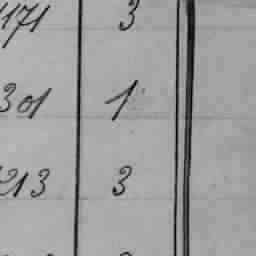 1171 3
301 1
213 3